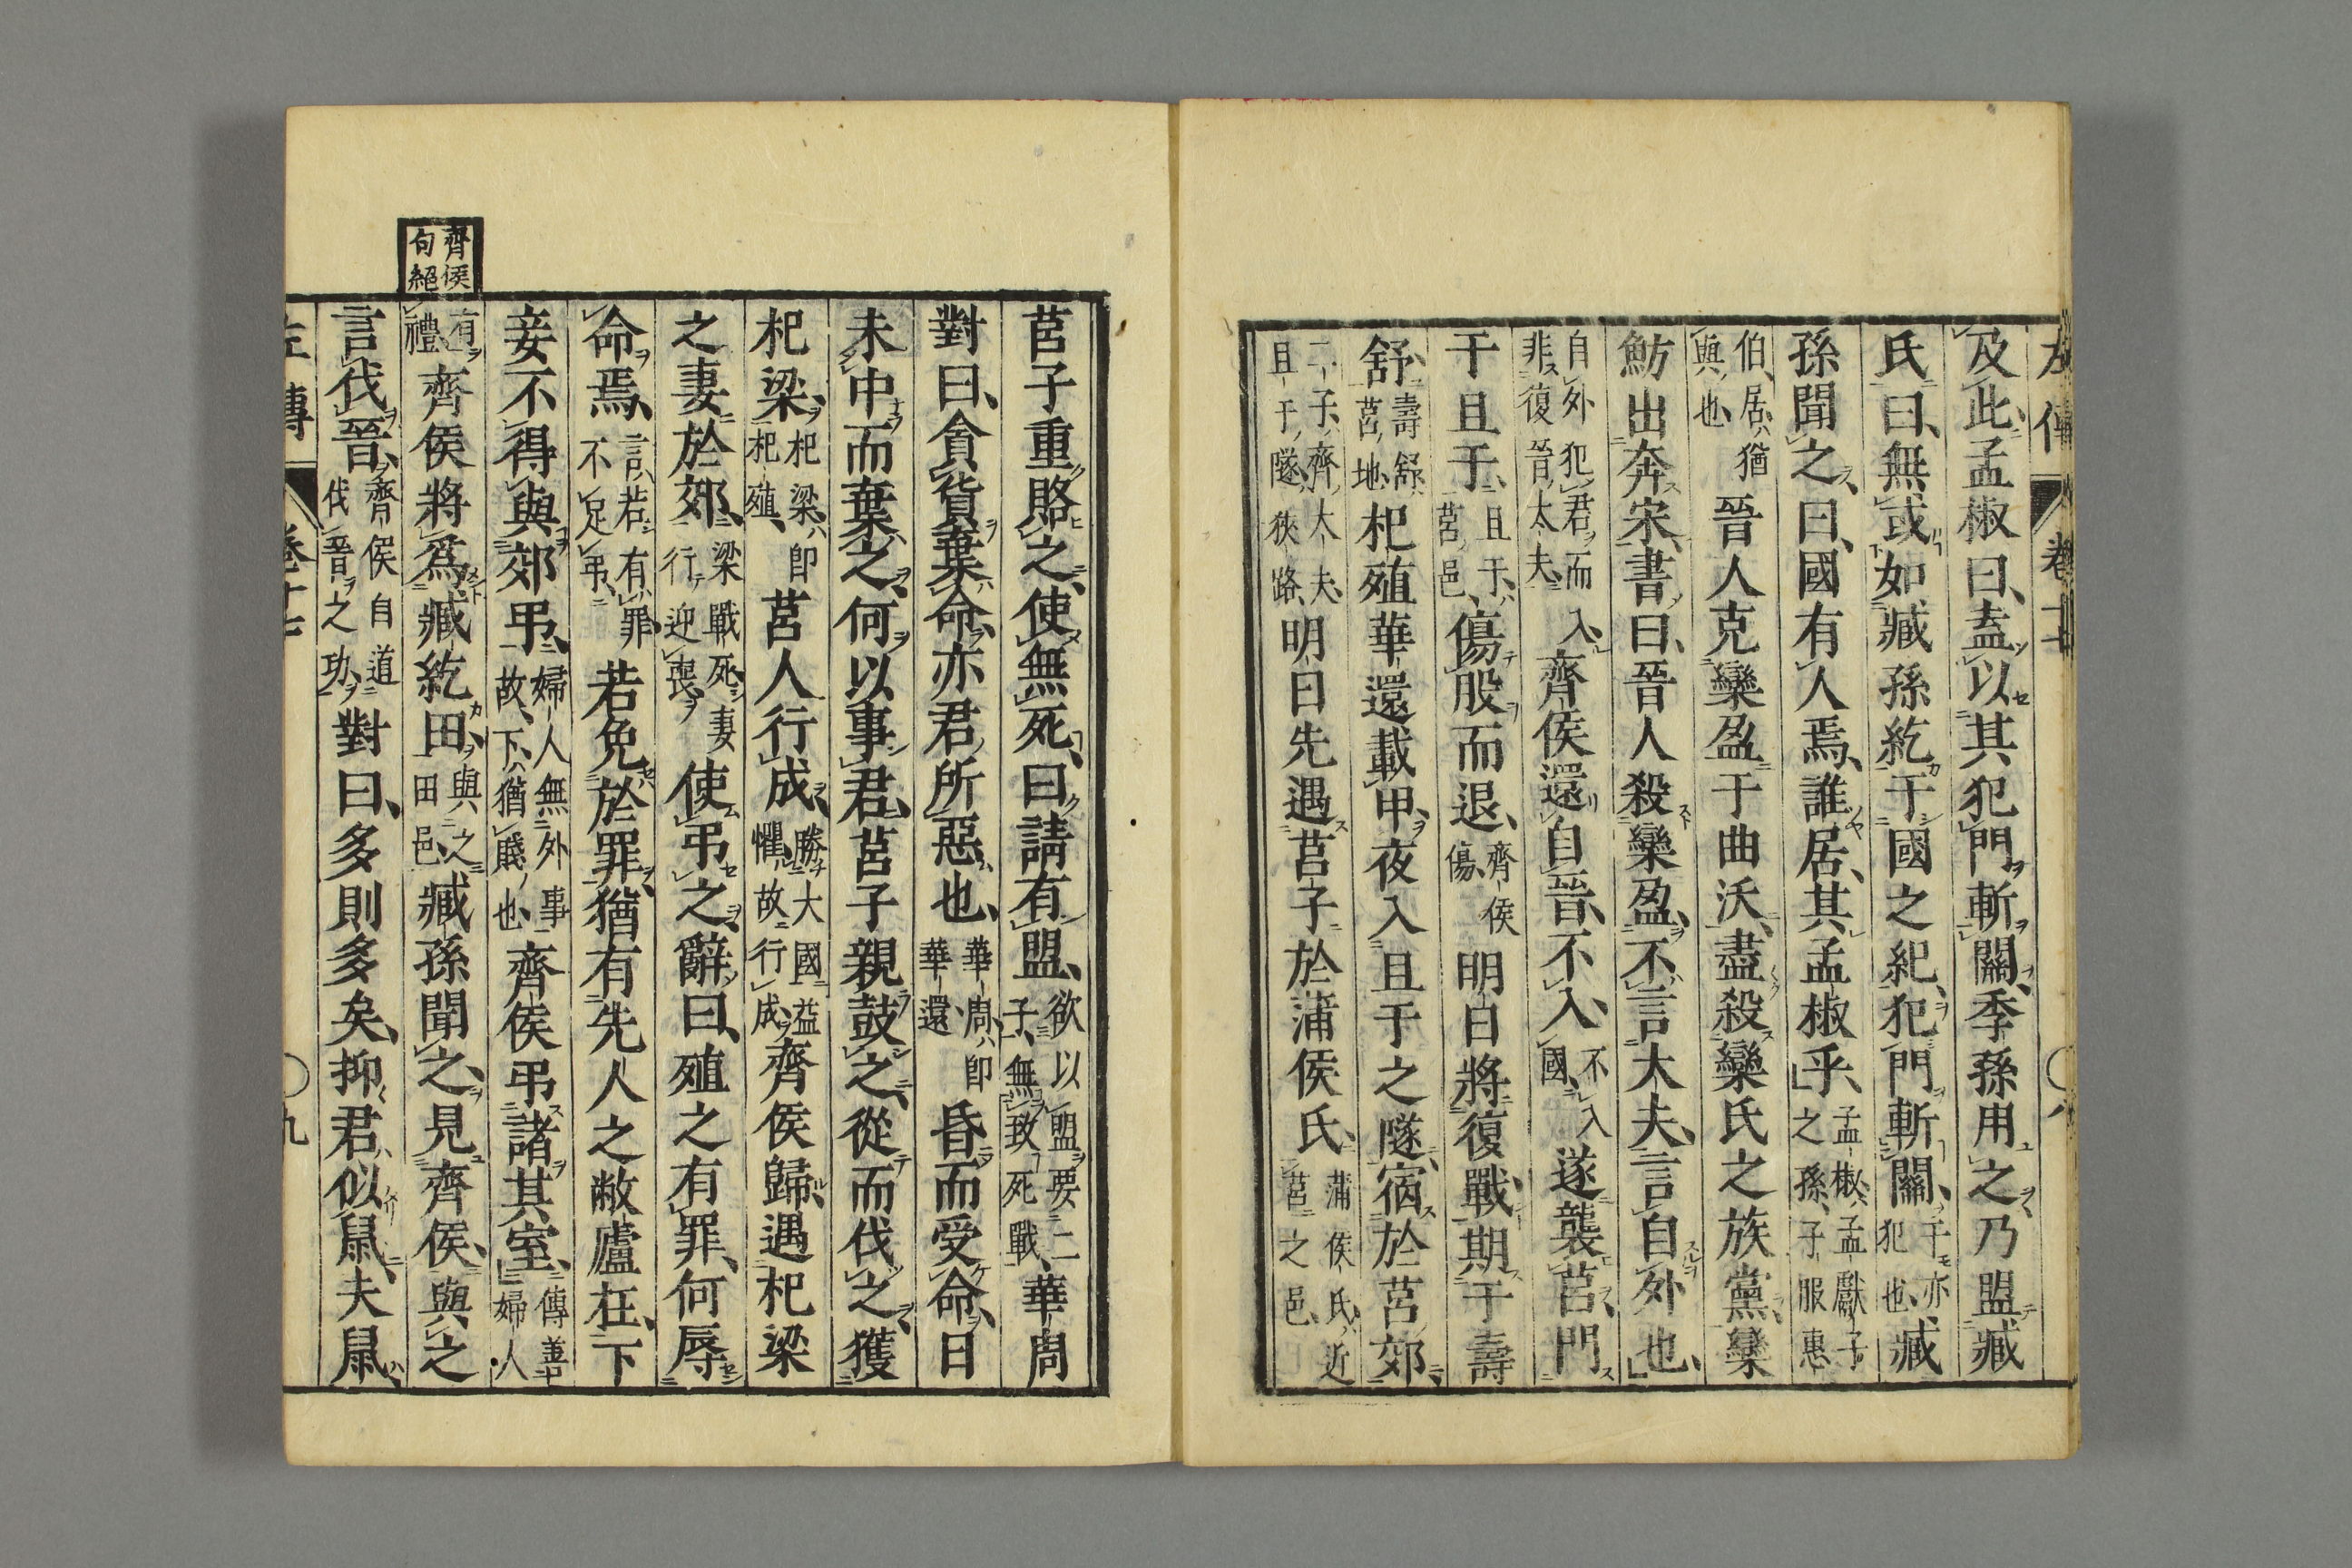 左傳 卷十七 〇八
及此孟椒曰盍以其犯門斬關季孫用之乃盟臧
氏曰無或如臧孫紇干國之紀犯門斬關干亦犯也臧
孫聞之曰國有人焉誰居其孟椒乎孟椒孟獻子之孫子服惠
伯居猶與也晉人克欒盈于曲沃盡殺欒氏之族黨欒
魴出奔宋書曰晉人殺欒盈不言大夫言自外也
自外犯君而入非復晉大夫齊侯還自晉不入不入國遂襲莒門
于且于且于莒邑傷股而退齊侯傷明日將復戰期于壽
舒壽舒莒地杞殖華還載甲夜入且于之隧宿於莒郊
二子齊大夫且于隧狹路明日先遇莒子於蒲侯氏蒲侯氏近莒之邑
莒子重賂之使無死曰請有盟欲以盟要二子無致死戰華周
對曰貪貨棄命亦君所惡也華周即華還昏而受命日
未中而棄之何以事君莒子親鼓之從而伐之獲
杞梁杞梁即杞殖莒人行成勝大國益懼故行成齊侯歸遇杞梁
之妻於郊梁戰死妻行迎喪使弔之辭曰殖之有罪何辱
命焉言若有罪不足弔若免於罪猶有先人之敝廬在下
妾不得與郊弔婦人無外事故下猶賤也齊侯弔諸其室傳善婦人
齊侯句絕
有禮齊侯將爲臧紇田與之田邑臧孫聞之見齊侯與之
言伐晉齊侯自道伐晉之功對曰多則多矣抑君似鼠夫鼠
左傳 卷十七 〇九